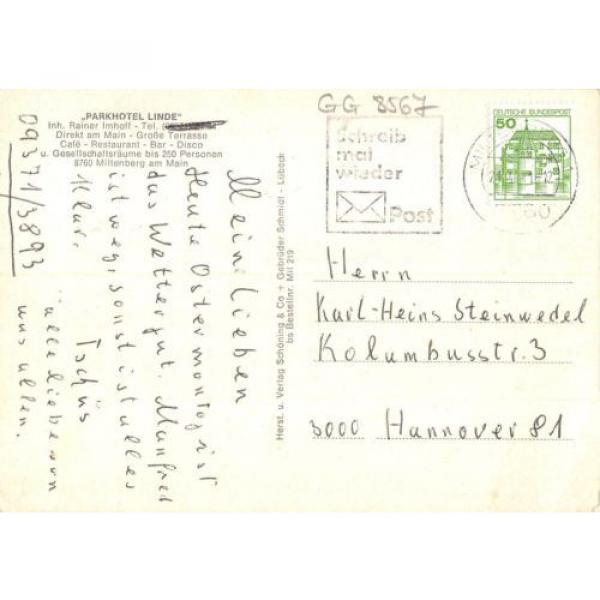 „PARKHOTEL LINDE"
Inh. Rainer Imhoff - Tel. (
Direkt am Main - Große Terrasse
Café - Restaurant - Bar - Disco
u. Gesellschaftsräume bis 250 Personen
8760 Miltenberg am Main
09371/3893
Meine Lieben
Heute Ostermontag ist
das Wetter gut. Manfred
ist weg, sonst ist alles
klar.
Tschüs
alle liebe von
uns allen.
Herst. u. Verlag Schöning & Co + Gebrüder Schmidt - Lübeck
bs Bestellnr. Mil 219
GG 8567
Schreib
mal
wieder
Post
DEUTSCHE BUNDESPOST
50
Herrn
Karl-Heins Steinwedel
Kolumbusstr. 3
3000 Hannover 81